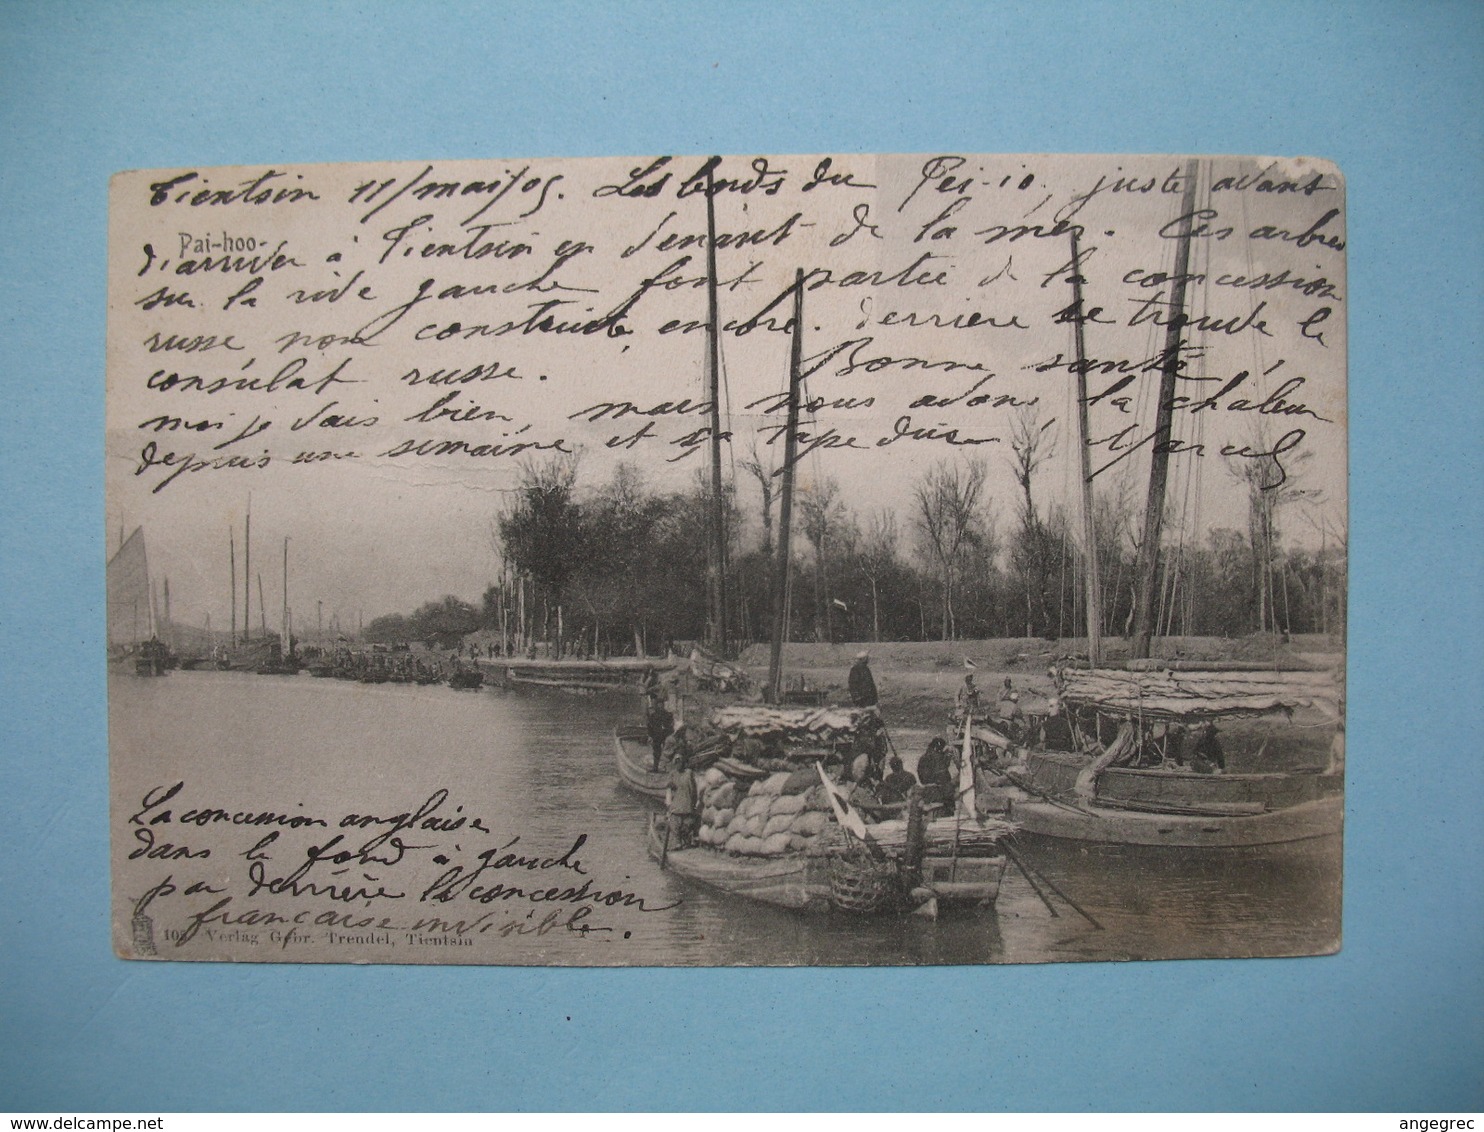 Tientsin 11/mai/05. Les bords du Pei-io, juste avant
Pai-hoo-
d'arriver à Tientsin en venant de la mer. Ces arbres
sur la rive gauche font partie de la concession
russe non construite encore. derrière se trouve le
consulat russe. Bonne santé,
moi je vais bien mais nous avons la chaleur
depuis une semaine et ça tape dur Marcel
La concession anglaise
dans le fond à gauche
par derrière la concession
française invisible.
Verlag Gebr. Trendel, Tientsin
delcampe.net
angegrec